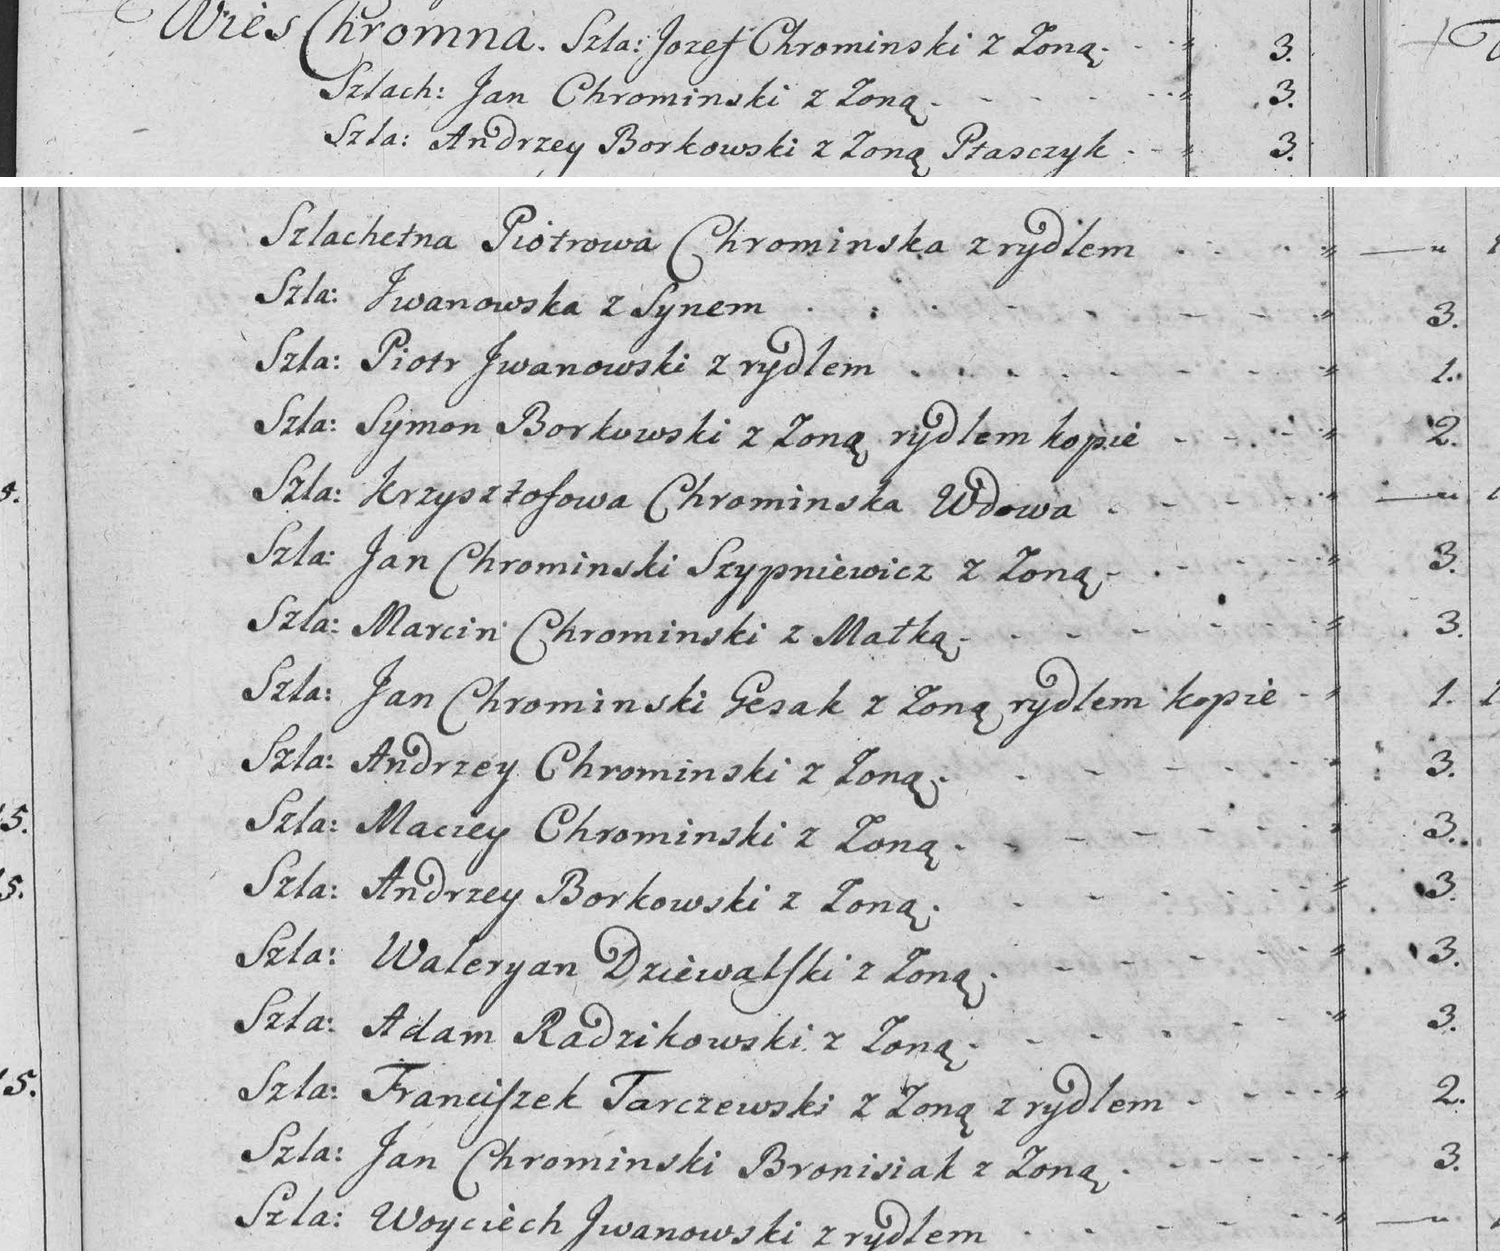 Wies Chromna. Szla: Jozef Chrominski z Zoną. 3.
Szlach: Jan Chrominski z Zoną. 3.
Szla: Andrzey Borkowski z Zoną Ptasczyk 3.
Szlachetna Piotrowa Chrominska z rydlem
Szla: Jwanowska z Synem 3.
Szla: Piotr Jwanowski z rydlem 1.
Szla: Symon Borkowski z Zoną rydlem kopie 2.
Szla: Krzysztofowa Chrominska Wdowa
Szla: Jan Chrominski Szypniewicz z Zoną 3.
Szla: Marcin Chrominski z Matką 3.
Szla: Jan Chrominski Gesak z Zoną rydlem kopie 1.
Szla: Andrzey Chrominski z Zoną 3.
Szla: Maciey Chrominski z Zoną 3.
Szla: Andrzey Borkowski z Zoną 3.
Szla: Waleryan Dziewalski z Zoną 3.
Szla: Adam Radzikowski z Zoną 3.
Szla: Franciszek Tarczewski z Zoną z rydlem 2.
Szla: Jan Chrominski Bronisiak z Zoną 3.
Szla: Woyciech Jwanowski z rydlem